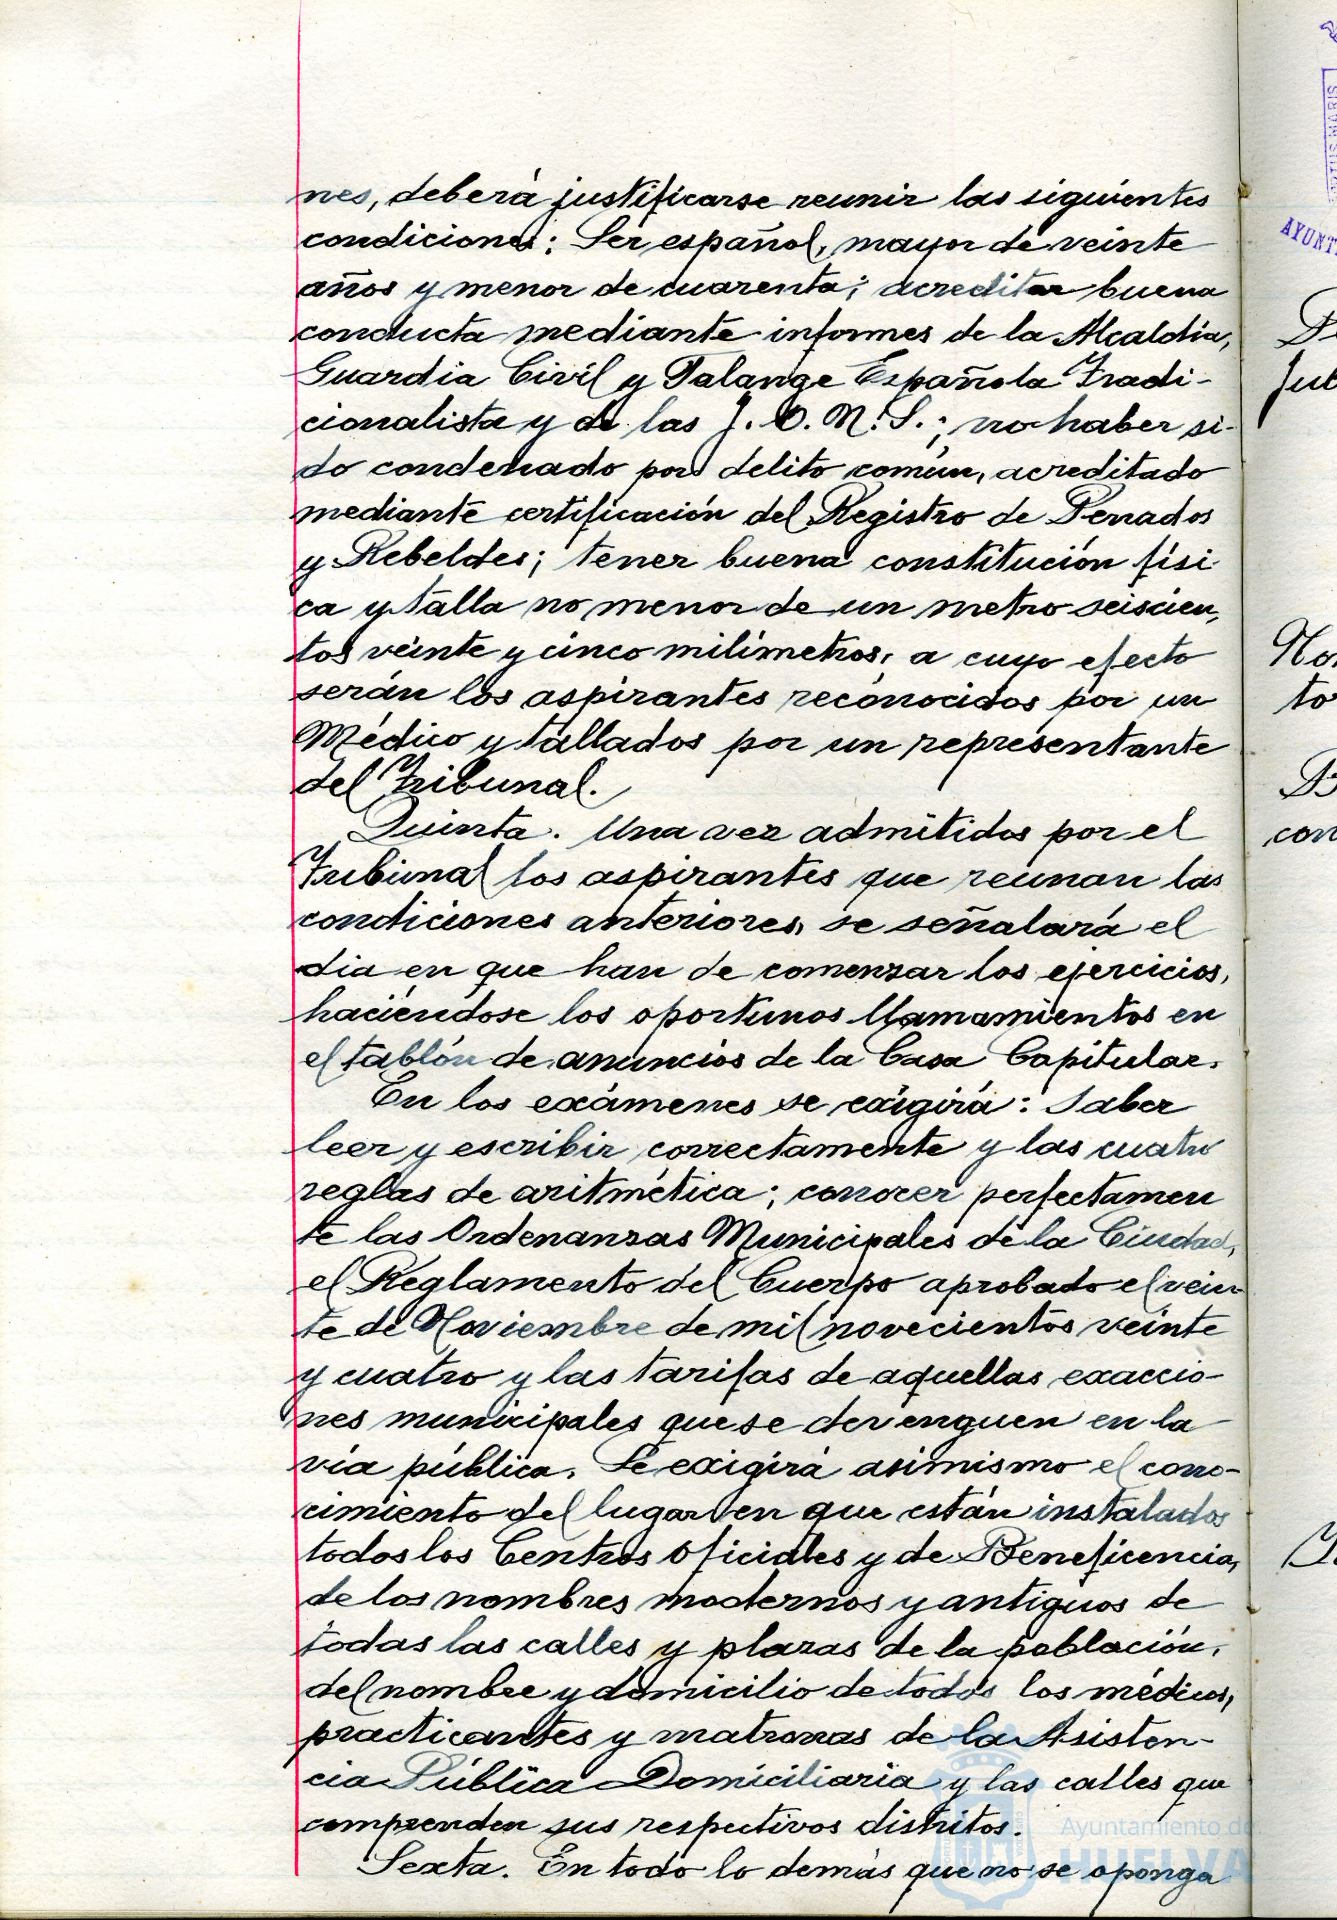 nes, deberá justificarse reunir las siguientes
condiciones: Ser español, mayor de veinte
años y menor de cuarenta; acreditar buena
conducta mediante informes de la Alcaldía,
Guardia Civil y Falange Española Tradi-
cionalista y de las J. O. N. S.; no haber si-
do condenado por delito común, acreditado
mediante certificación del Registro de Penados
y Rebeldes; tener buena constitución físi-
ca y talla no menor de un metro seiscien,
tos veinte y cinco milímetros, a cuyo efecto
serán los aspirantes reconocidos por un
Médico y tallados por un representante
del Tribunal.
Quinta. Una vez admitidos por el
Tribunal los aspirantes que reunan las
condiciones anteriores, se señalará el
dia en que han de comenzar los ejercicios,
haciéndose los oportunos llamamientos en
el tablón de anuncios de la Casa Capitular.
En los exámenes se exigirá: Saber
leer y escribir correctamente y las cuatro
reglas de aritmética; conocer perfectamen
te las Ordenanzas Municipales de la Ciudad,
el Reglamento del Cuerpo aprobado el vein-
te de Noviembre de mil novecientos veinte
y cuatro y las tarifas de aquellas exaccio-
nes municipales que se devenguen en la
vía pública. Se exigirá asimismo el cono-
cimiento del lugar en que están instalados
todos los Centros Oficiales y de Beneficencia,
de los nombres modernos y antiguos de
todas las calles y plazas de la población,
del nombre y domicilio de todos los médicos,
practicantes y matronas de la Asisten-
cia Pública Domiciliaria y las calles que
comprenden sus respectivos distritos.
Sexta. En todo lo demás que no se oponga
Ayuntamiento de
HUELVA